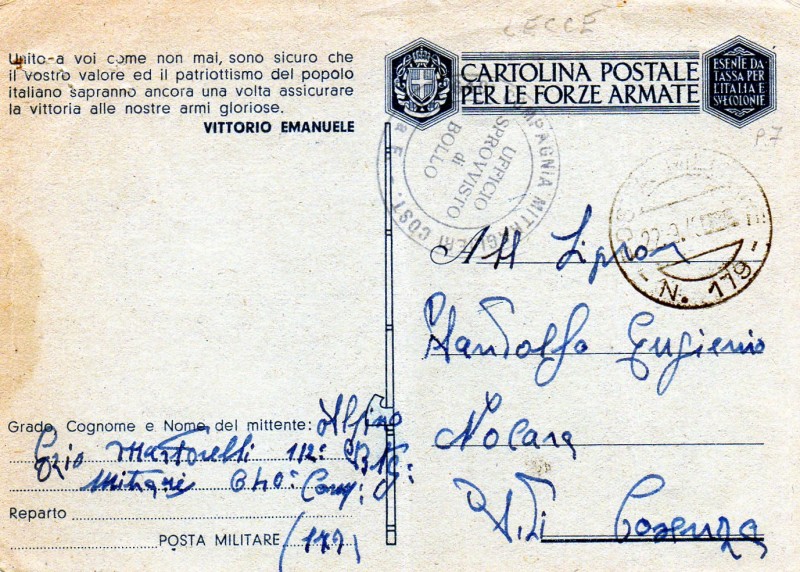 LECCE
Unito a voi come non mai, sono sicuro che
il vostro valore ed il patriottismo del popolo
italiano sapranno ancora una volta assicurare
la vittoria alle nostre armi gloriose.
VITTORIO EMANUELE
CARTOLINA POSTALE
PER LE FORZE ARMATE
ESENTE DA
TASSA PER
L'ITALIA E
SUE COLONIE
P.7
COMPAGNIA MITRAGLIERI COST.
UFFICIO
SPROVVISTO
di
BOLLO
N. 179
All
Eugenio
Nocara
Cosenza
Grado, Cognome e Nome del mittente:
Ezio Martorelli 112°
640° Comp.
Reparto
POSTA MILITARE (179)